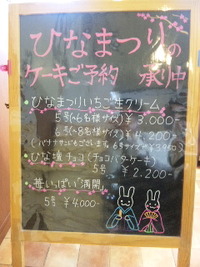 ひなまつりの
ケーキご予約 承り中
ひなまつりいちご生クリーム
5号(4~6名様サイズ) ¥3.000-
6号(6~8名様サイズ) ¥4.200-
(バナナサンドもございます。6号サイズ ¥3.950)
チョコ(チョコバターケーキ)
5号 ¥2.200-
苺いっぱい"満開"
5号 ¥4.000-